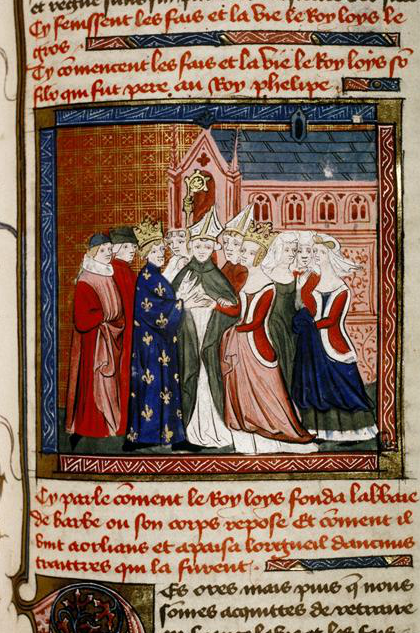 Cy fenissent les fais et la vie le Roy loys le
gros
Cy cōmencent les fais et la vie le Roy loijs sō
filz qui fut pere au Roy phelipe
Cy parle cōment le Roy loys fonda labbaie
de barbe ou son corps repose Et cōment il
vint aorlians et apaisa lorgueil daucuns
traittres qui la furent
Es ores mais puis q̄ nous
soiмes acquittes de retraire